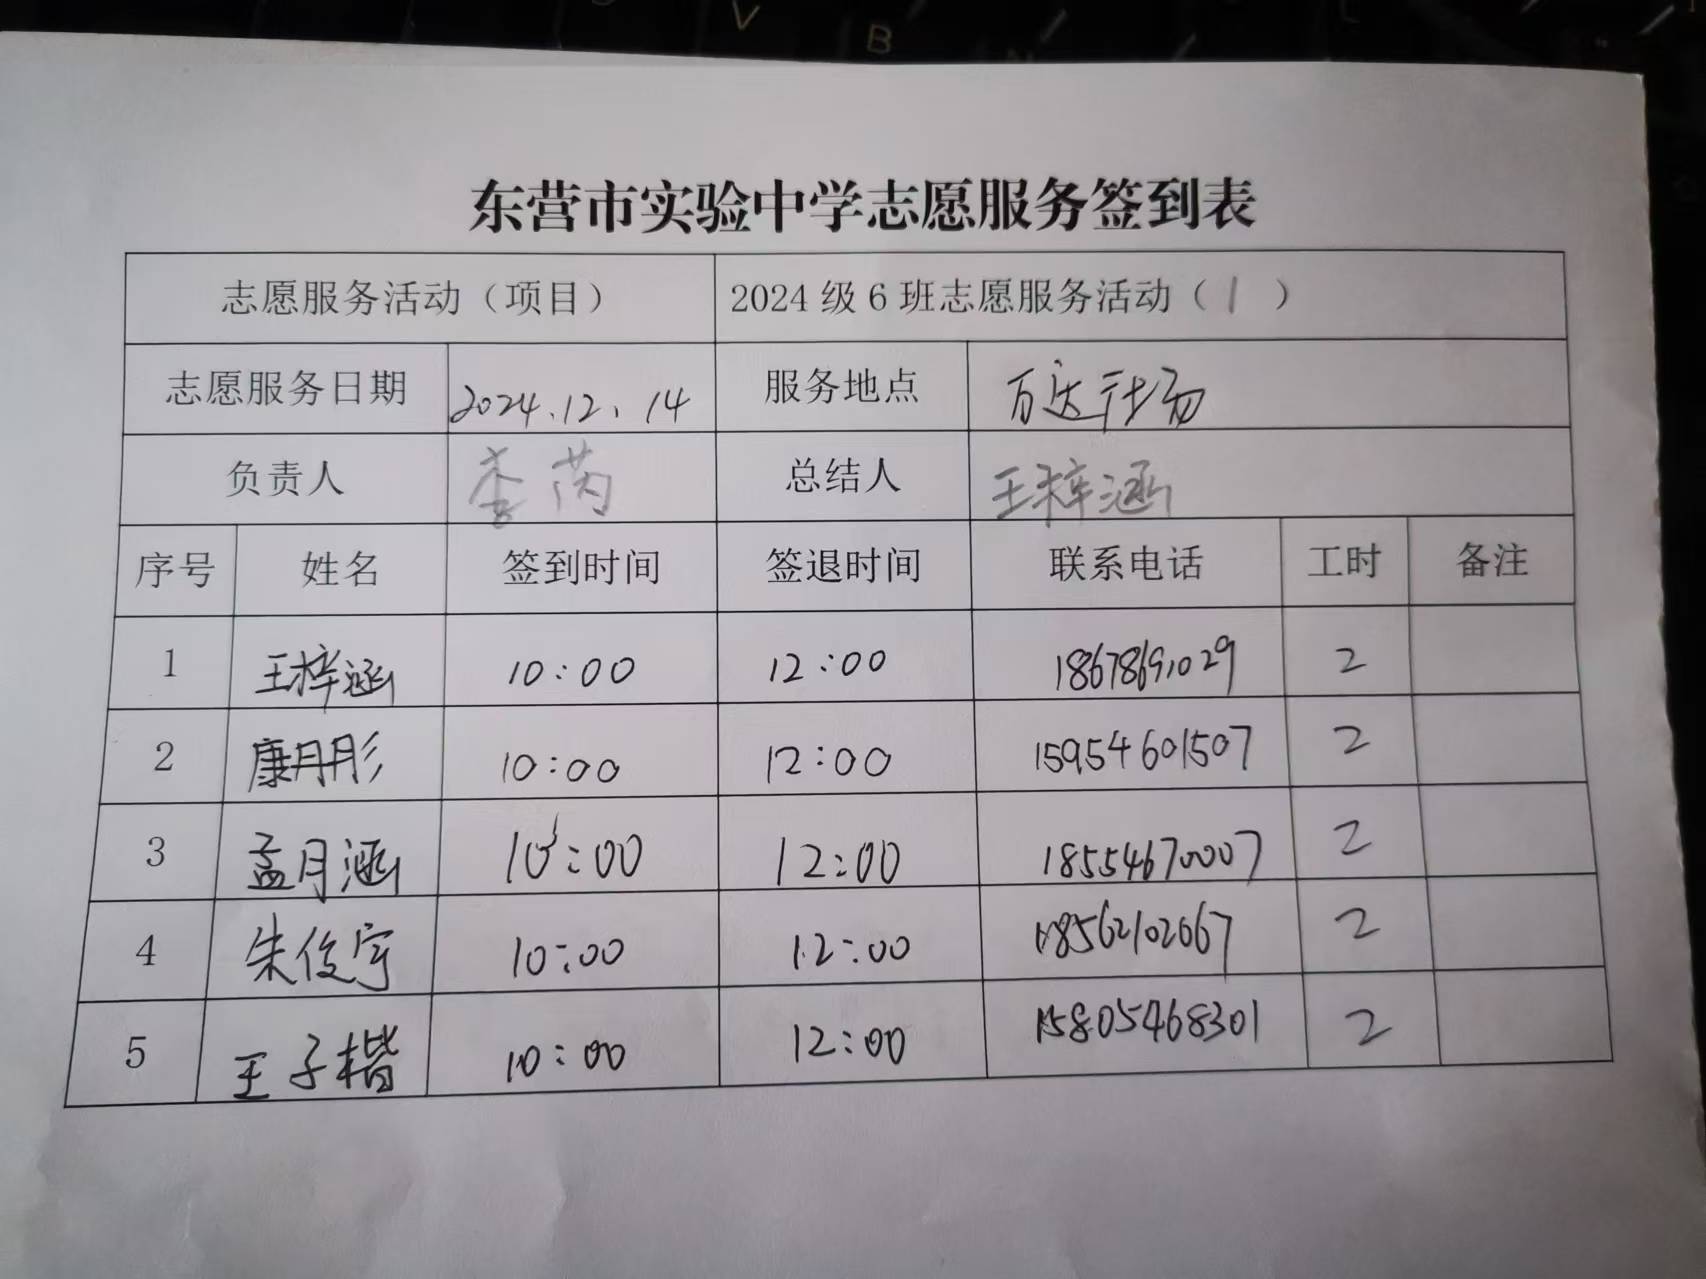 东营市实验中学志愿服务签到表
志愿服务活动（项目） 2024级6班志愿服务活动（1）
志愿服务日期 2024.12.14 服务地点 万达广场
负责人 李芮 总结人 王梓涵
序号 姓名 签到时间 签退时间 联系电话 工时 备注
1 王梓涵 10:00 12:00 18678691029 2
2 康朋彤 10:00 12:00 15954601507 2
3 孟月涵 10:00 12:00 18554670007 2
4 朱俊宇 10:00 12:00 18562102667 2
5 王子楷 10:00 12:00 15805468301 2
V
B